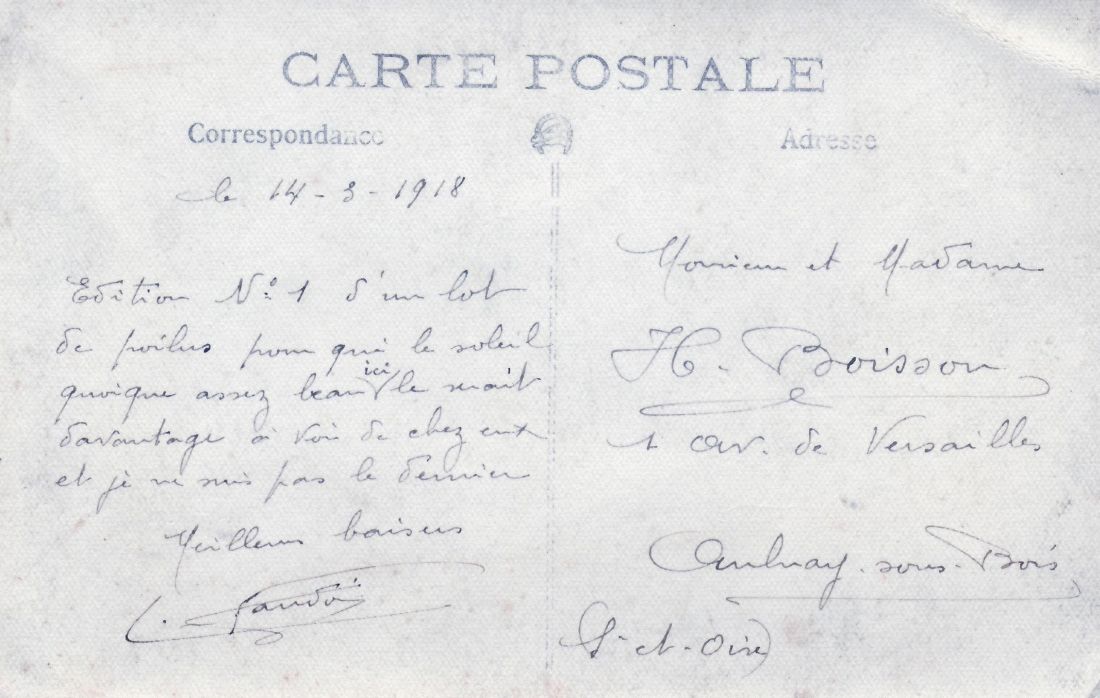 CARTE POSTALE
Correspondance
Adresse
le 14-3-1918
Edition No 1 d'un lot
de poilus pour qui le soleil
quoique assez beau ici le serait
davantage à voir de chez eux
et je ne suis pas le dernier
Meilleurs baisers
Monsieur et Madame
H. Boisson
1 av. de Versailles
Aulnay-sous-Bois
(S-et-Oise)